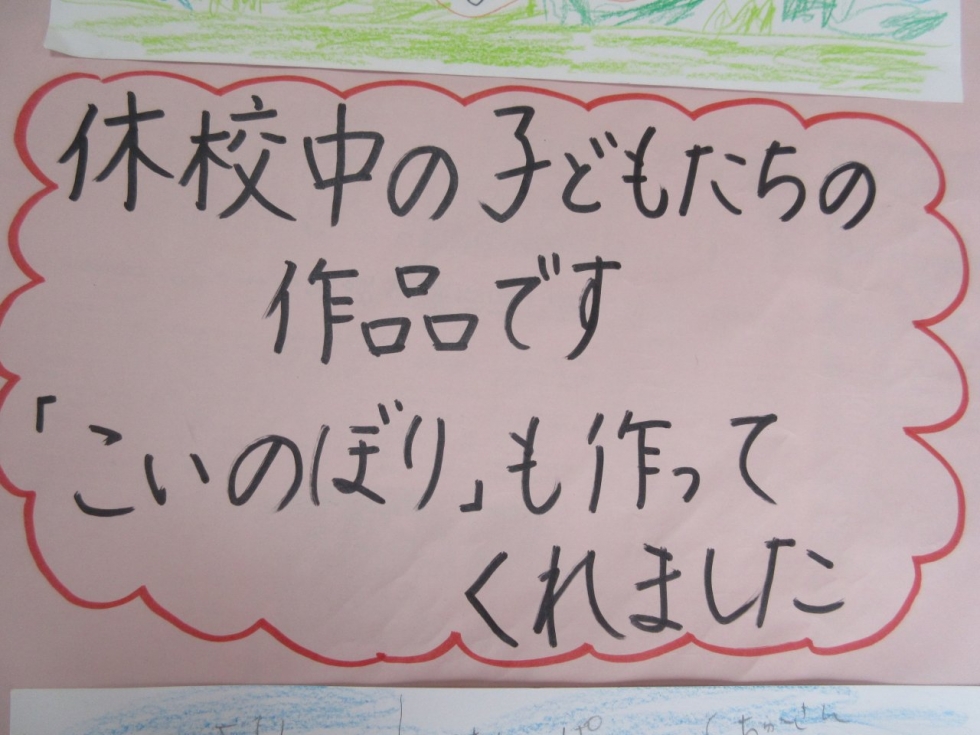 休校中の子どもたちの
作品です
「こいのぼり」も作って
くれました